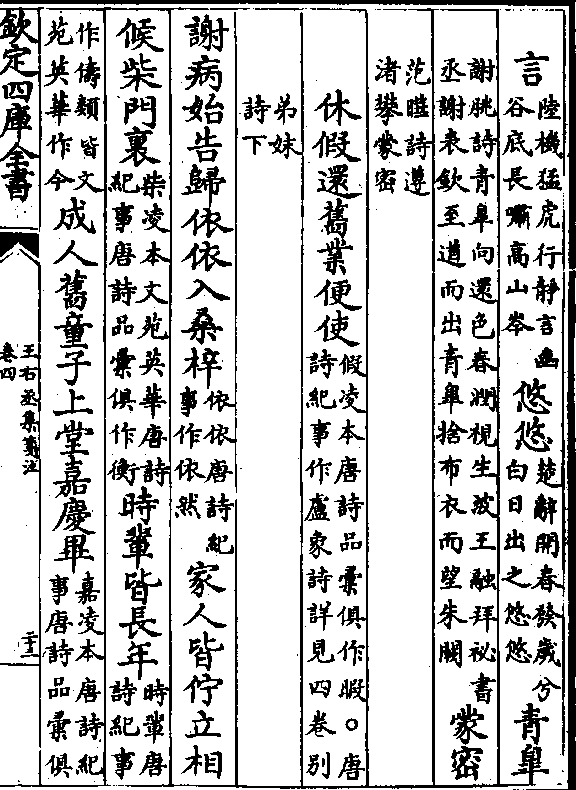 言陸機猛虎行靜言幽谷底長嘯高山岑悠悠楚辭開春發歲兮白日出之悠悠青臯
謝朓詩青臯向還色春潤視生波王融拜祕書丞謝表欽至道而出青臯捨布衣而望朱闕蒙密
范曄詩遵渚攀蒙密
休假還舊業便使假凌本唐詩品彙俱作暇○唐詩紀事作盧象詩詳見四卷别
弟妹詩下
謝病始告歸依依入桑梓依依唐詩紀事作依然家人皆佇立相
候柴門裏柴凌本文苑英華唐詩紀事唐詩品彙俱作衡時輩皆長年時輩唐詩紀事
作儔類皆文苑英華作今成人舊童子上堂嘉慶畢嘉凌本唐詩紀事唐詩品彙俱
欽定四庫全書
王右丞集箋注
卷四
二十三